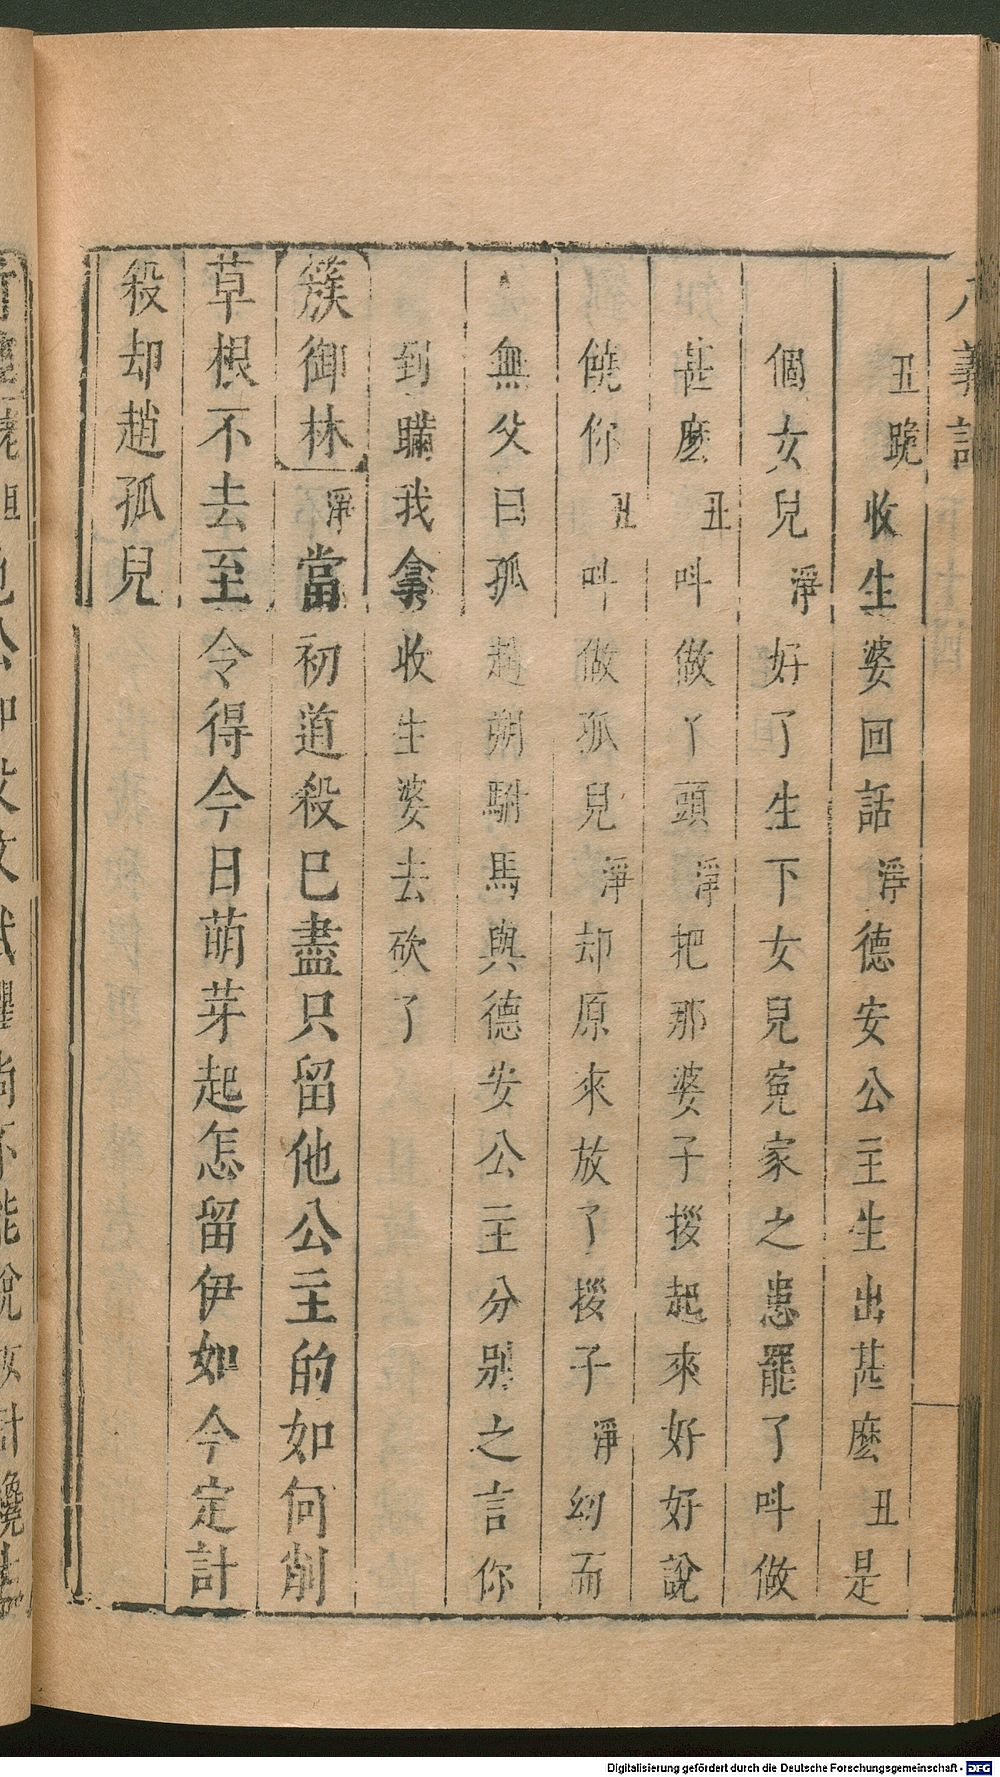 八義記
丑跪收生婆回話淨德安公主生出甚麽丑是
個女兒淨好了生下女兒寃家之患罷了呌做
甚麽丑呌做丫頭淨把那婆子拶起來好好說
饒你丑呌做孤兒淨却原來放了拶子淨幼而
無父曰孤趙朔駙馬與德安公主分別之言你
到瞞我拿收生婆去砍了
簇御林淨當初道殺巳盡只留他公主的如何削
草根不去至令得今日萌芽起怎留伊如今定計
殺却趙孤兒
Digitalisierung gefördert durch die Deutsche Forschungsgemeinschaft - DFG